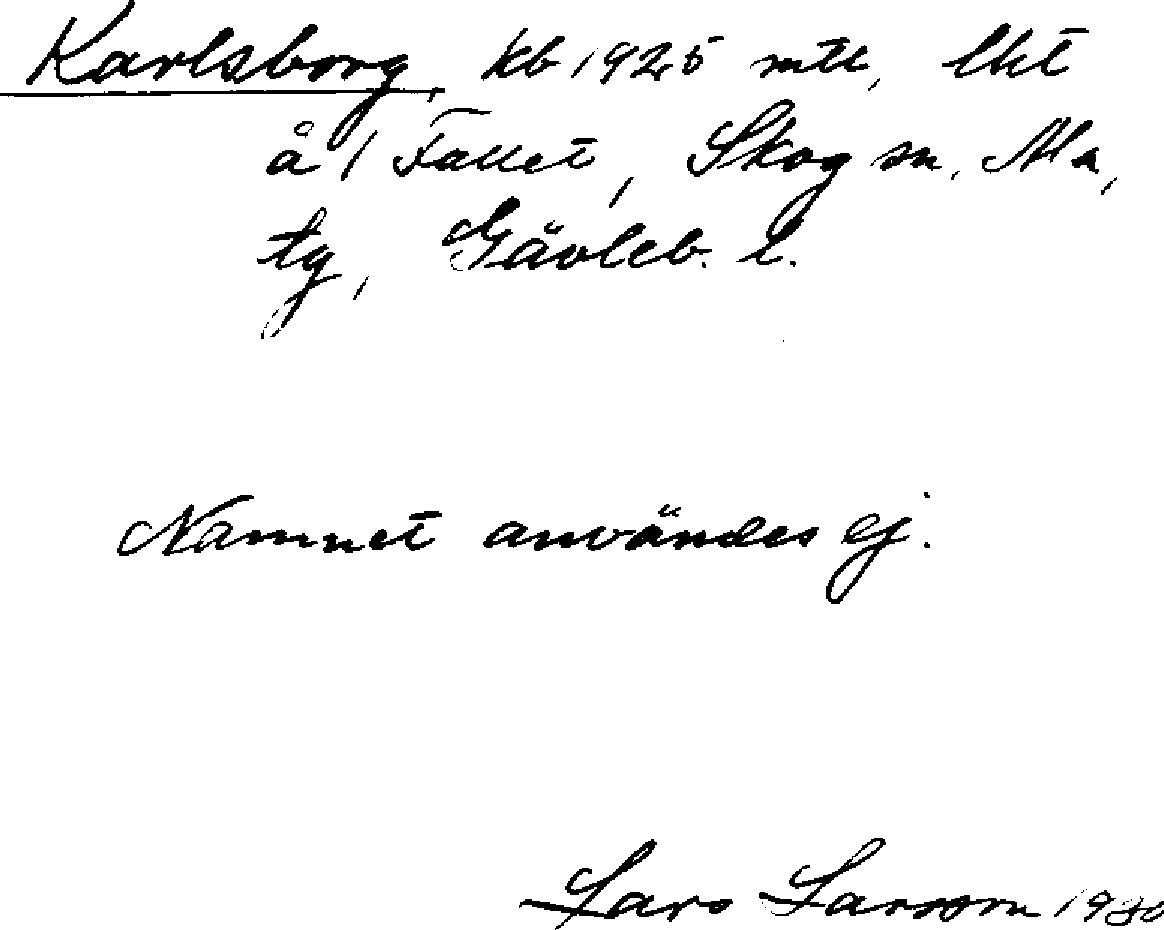 Karlsborg, kb 1925 mtl, lht
å 1 Fallet, Skog sn, Ala,
tg, Gävleb. l.
Namnet användes ej.
Lars Larsson 1930